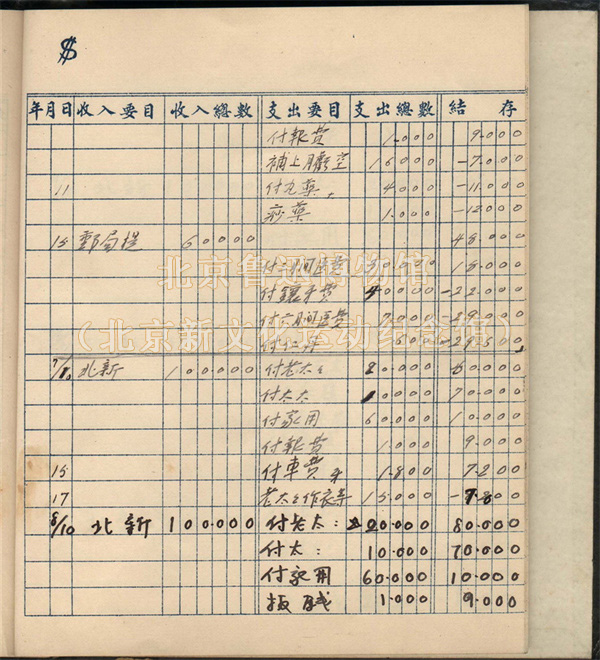 $
年月日 收入要目 收入總數 支出要目 支出總數 結存
付報費 1.000 9.000
補上月虧空 16.000 -7.000
11 付丸藥 4.000 -11.000
藥 1.000 -12.000
15 郵局提 60000 48.000
付 15.000
付鑲牙費 -22.000
付六月間 7.000 -29.000
付
7/10 北新 100000 付老太太 20000 80000
付太太 10000 70.000
付家用 60.000 10.000
付報費 1.000 9.000
15 付車費 1.800 7.200
17 老太太作衣等 15.000 -7.800
8/10 北新 100.000 付老太: 20.000 80.000
付太: 10.000 70.000
付家用 60.000 10.000
1.000 9.000
北京鲁迅博物馆
(北京新文化运动纪念馆)